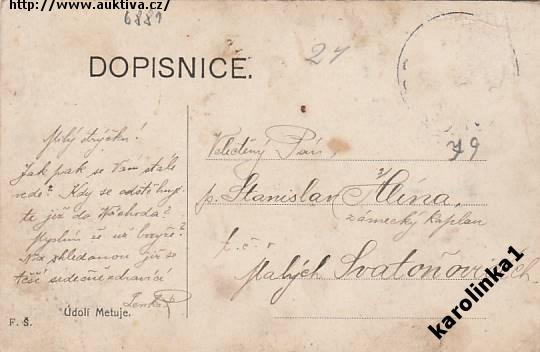 http://www.auktiva.cz/
6889
24
DOPISNICE.
Milý strýčku!
Jak pak se Vám stále
vede? Kdy se odstěhuje-
te již do
Myslím že už brzy?
Na shledanou již se
těší srdečně zdravící
Lenka
Údolí Metuje.
F. Š.
Velectěný Pán,
79
p. Stanislav Hlína,
zámecký kaplan
t. č. v
Malých Svatoňovicích.
karolinka1